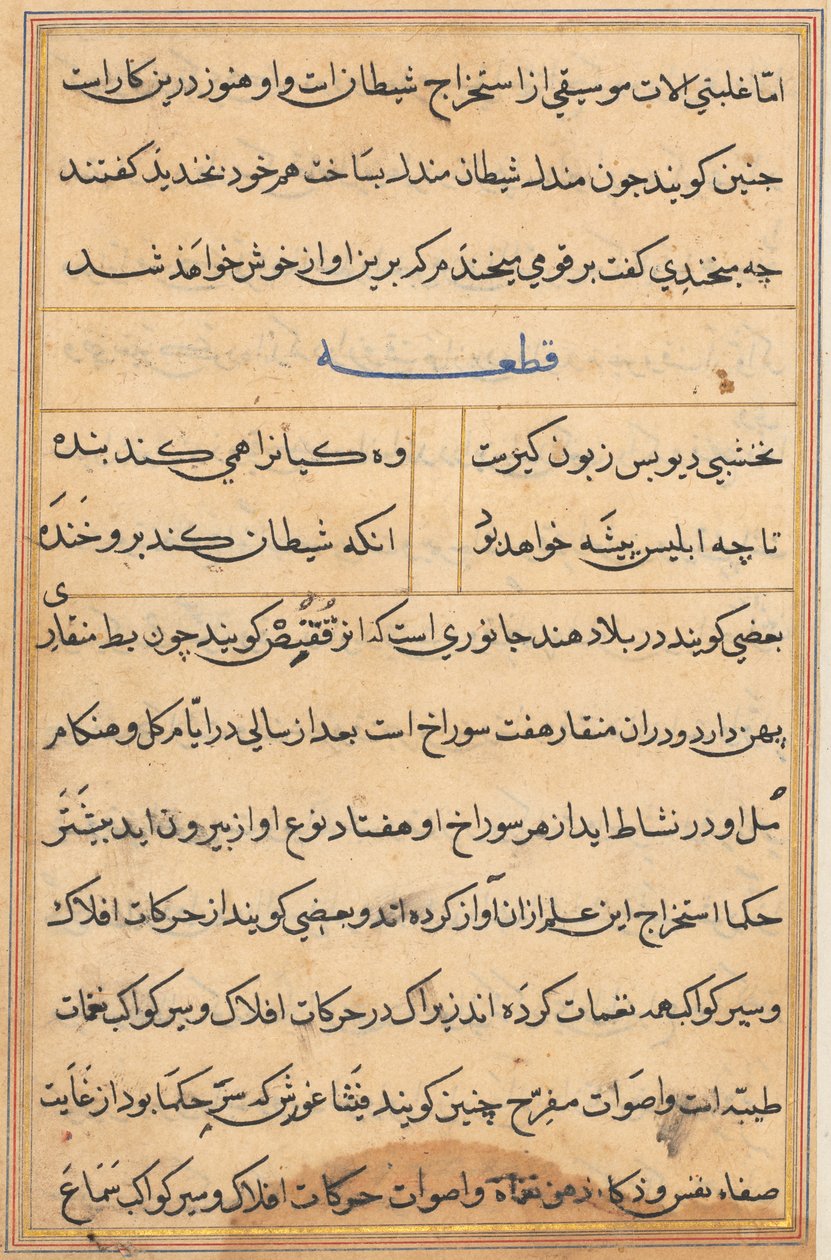 امّا غلبتي الات موسیقي از استخراج شیطان است و او هنوز درین کار است
جنین کویند جون مندل شیطان مندل بساخت هم خود بخندید کفتند
چه میخندِي کفت بر قومي میخندم که برین اواز خوش خواهند شد
قطعه
نخشبي دیو بس زبون کیرست
وه کیانرا همي کند بنده
تا چه ابلیس پیشَه خواهد بود
انکه شیطان کند برو خَندَه
بعضي کویند در بلاد هند جانوري است که انرا ققنُص کویند چون بط منقاری
پهن دارد و دران منقار هفت سوراخ است بعد از سالي در ایّام کل و هنکام
مُل او در نشاط اید از هر سوراخ او هفتاد نوع اواز بیرون اید بیشتَر
حکما استخراج این علم ازان آواز کرده اند و بعضي کویند از حرکات افلاک
و سیر کواکب همه نغمات کردَه اند زیراک در حرکات افلاک و سیر کواکب نغمات
طیبّه است واصوَات مفرِّح چنین کویند فیثاغورش که سَرِ حکمَا بود از غَایت
صفاء نفس و ذکاء ذهن نغماه واصوات حرکات افلاک و سیر کواکب سَمَاعَ